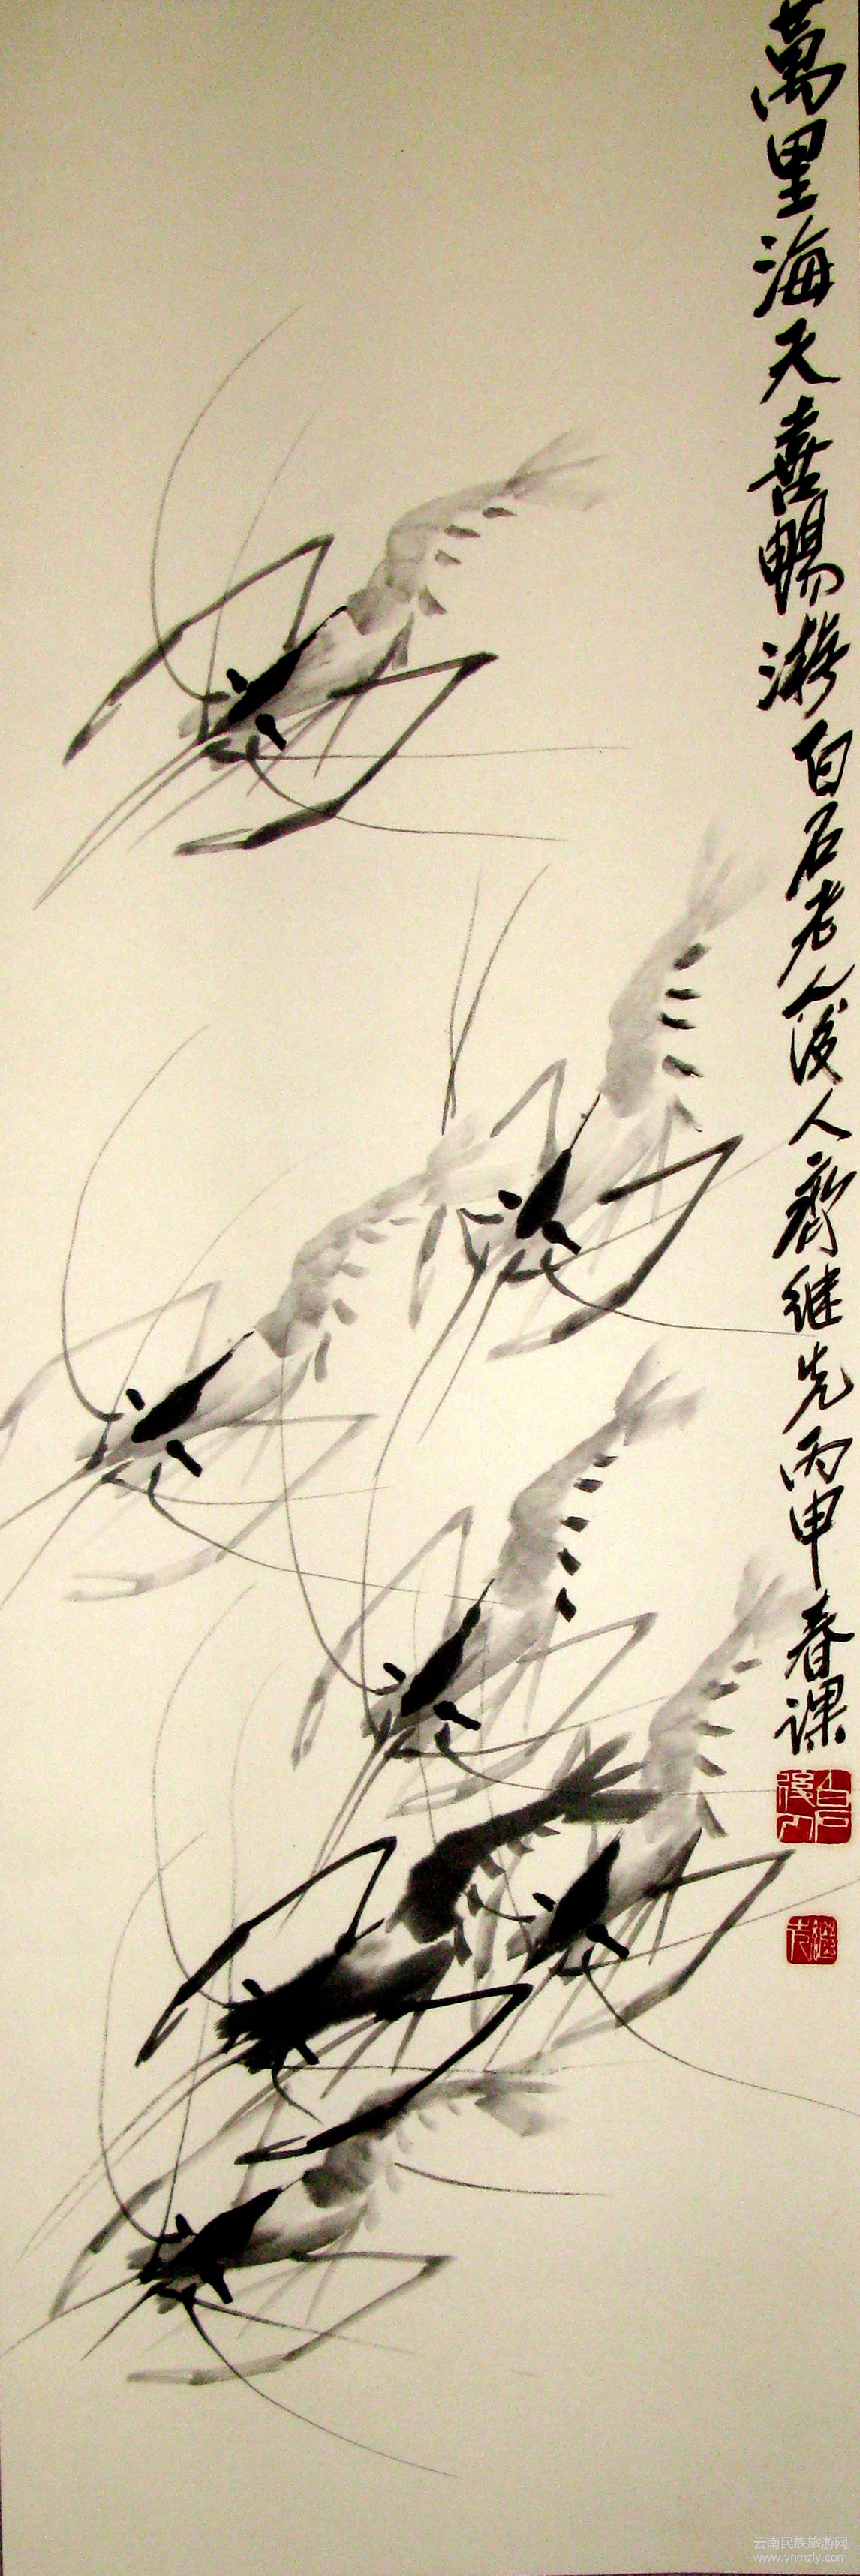 萬里海天喜暢游白石老人後人齊继先丙申春課
白石後人
继先
云南民族旅游网
www.ynmzly.com